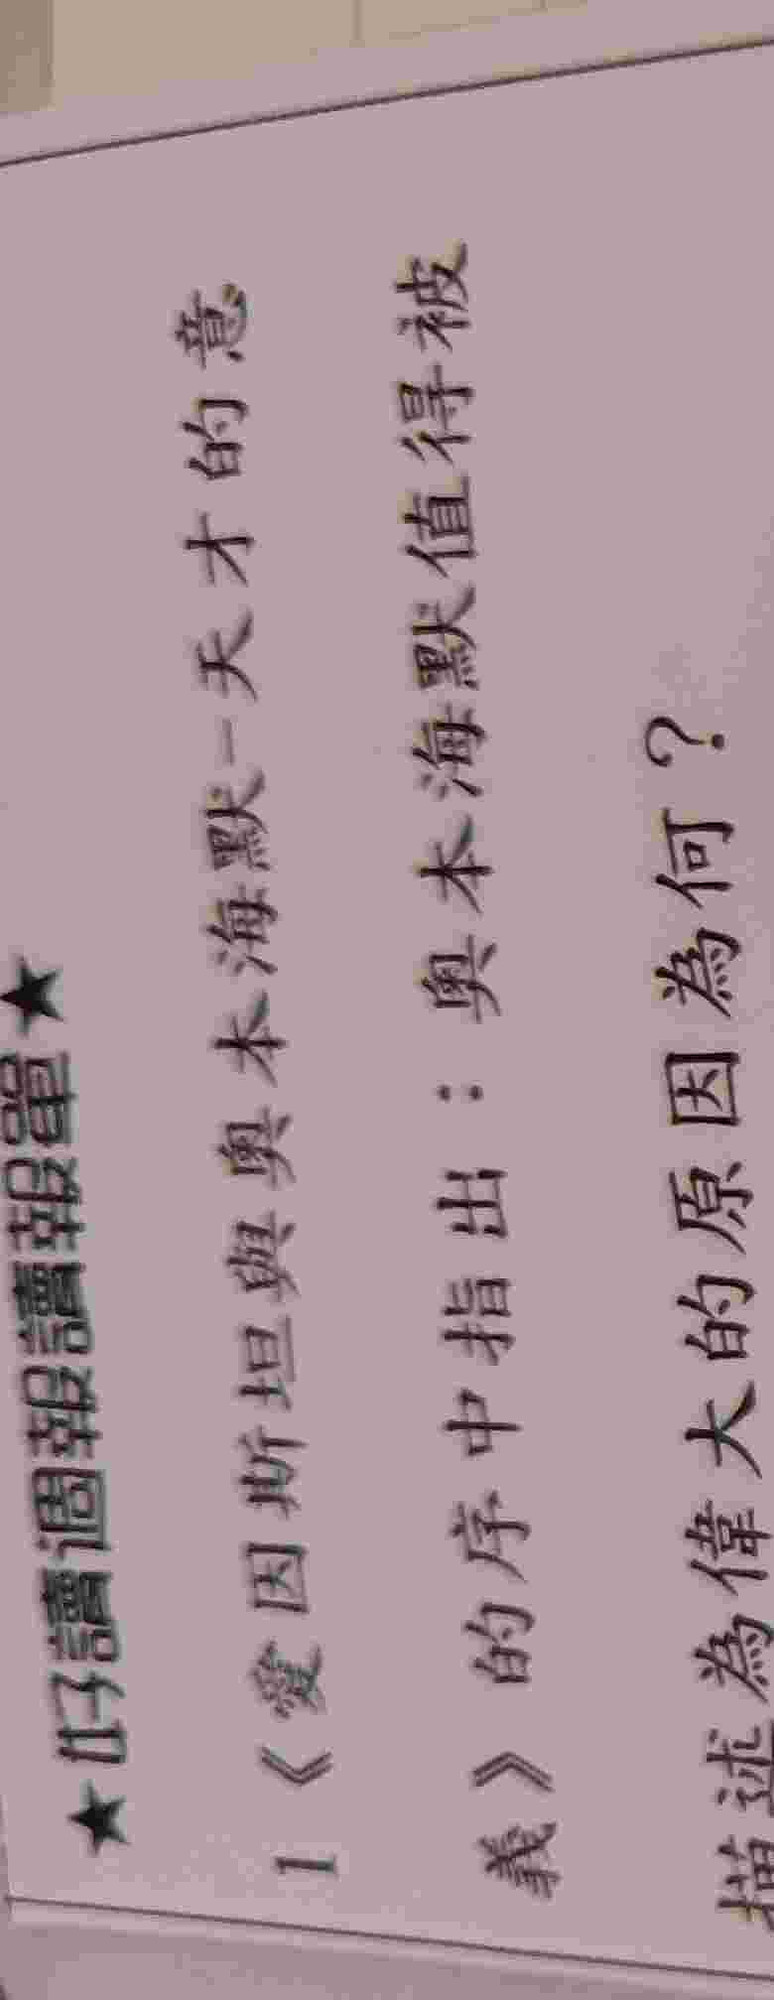 ★好讀週報讀報單★
1《愛因斯坦與奧本海默－天才的意
義》的序中指出：奧本海默值得被
描述為偉大的原因為何？